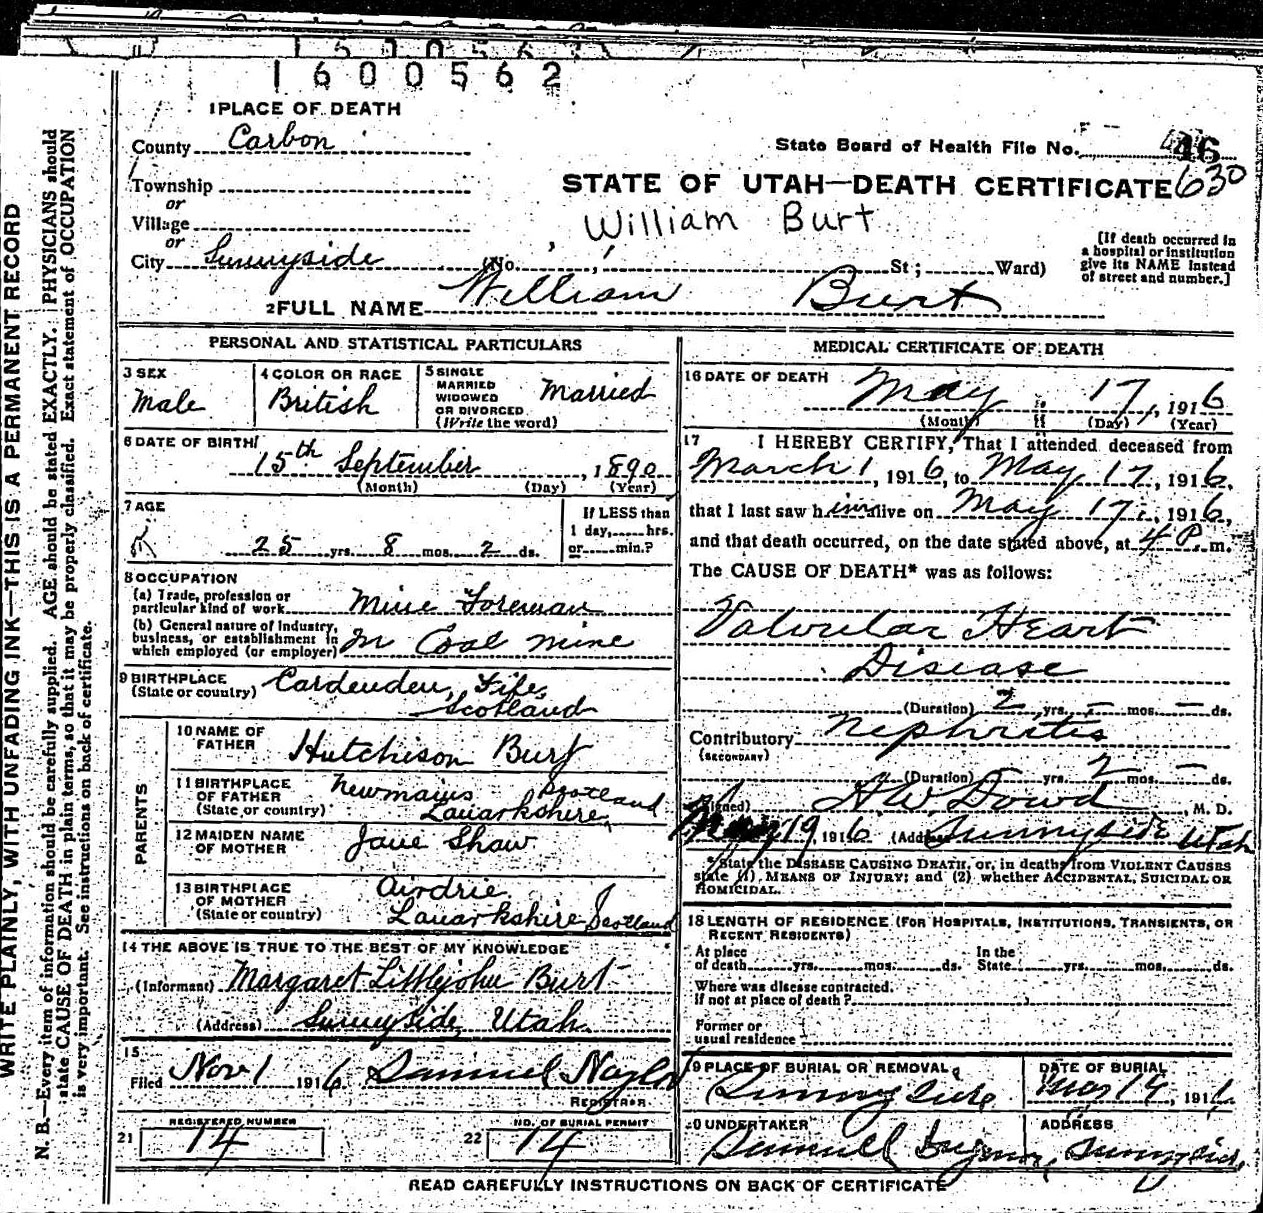 1600562
1 PLACE OF DEATH
County Carbon
State Board of Health File No. 46
Township
630
or
STATE OF UTAH—DEATH CERTIFICATE
Village
William Burt
or
City Sunnyside (No. St; Ward)
[If death occurred in
a hospital or institution
give its NAME instead
of street and number.]
2 FULL NAME William Burt
WRITE PLAINLY, WITH UNFADING INK—THIS IS A PERMANENT RECORD
N. B.—Every item of information should be carefully supplied. AGE should be stated EXACTLY. PHYSICIANS should
state CAUSE OF DEATH in plain terms, so that it may be properly classified. Exact statement of OCCUPATION
is very important. See instructions on back of certificate.
PERSONAL AND STATISTICAL PARTICULARS
3 SEX
Male
4 COLOR OR RACE
British
5 SINGLE
MARRIED
WIDOWED
OR DIVORCED
(Write the word)
Married
6 DATE OF BIRTH
15th September, 1890
(Month) (Day) (Year)
7 AGE
25 yrs. 8 mos. 2 ds.
If LESS than
1 day, hrs.
or min.?
8 OCCUPATION
(a) Trade, profession or
particular kind of work Mine Foreman
(b) General nature of industry,
business, or establishment in
which employed (or employer) In Coal mine
9 BIRTHPLACE
(State or country) Cardenden, Fife,
Scotland
PARENTS
10 NAME OF
FATHER Hutchison Burt
11 BIRTHPLACE
OF FATHER
(State or country) Newmains Scotland
Lanarkshire
12 MAIDEN NAME
OF MOTHER Jane Shaw
13 BIRTHPLACE
OF MOTHER
(State or country) Airdrie
Lanarkshire Scotland
14 THE ABOVE IS TRUE TO THE BEST OF MY KNOWLEDGE
(Informant) Margaret Littlejohn Burt
(Address) Sunnyside, Utah
15
Filed Nov 1 1916 Samuel Naylor
REGISTRAR
21 REGISTERED NUMBER
14
22 NO. OF BURIAL PERMIT
14
MEDICAL CERTIFICATE OF DEATH
16 DATE OF DEATH May 17, 1916
(Month) (Day) (Year)
17 I HEREBY CERTIFY, That I attended deceased from
March 1, 1916, to May 17, 1916,
that I last saw him alive on May 17, 1916,
and that death occurred, on the date stated above, at 4 P. m.
The CAUSE OF DEATH* was as follows:
Valvular Heart
Disease
(Duration) 2 yrs. – mos. – ds.
Contributory Nephritis
(SECONDARY)
(Duration) – yrs. 2 mos. – ds.
(Signed) H W Dowd, M. D.
May 19, 1916 (Address) Sunnyside Utah
* State the DISEASE CAUSING DEATH, or, in deaths from VIOLENT CAUSES
state (1), MEANS OF INJURY; and (2) whether ACCIDENTAL, SUICIDAL OR
HOMICIDAL.
18 LENGTH OF RESIDENCE (FOR HOSPITALS, INSTITUTIONS, TRANSIENTS, OR
RECENT RESIDENTS)
At place In the
of death yrs. mos. ds. State yrs. mos. ds.
Where was disease contracted,
if not at place of death?
Former or
usual residence
19 PLACE OF BURIAL OR REMOVAL
Sunnyside
DATE OF BURIAL
May 19, 1916
20 UNDERTAKER
Samuel
ADDRESS
Sunnyside
READ CAREFULLY INSTRUCTIONS ON BACK OF CERTIFICATE